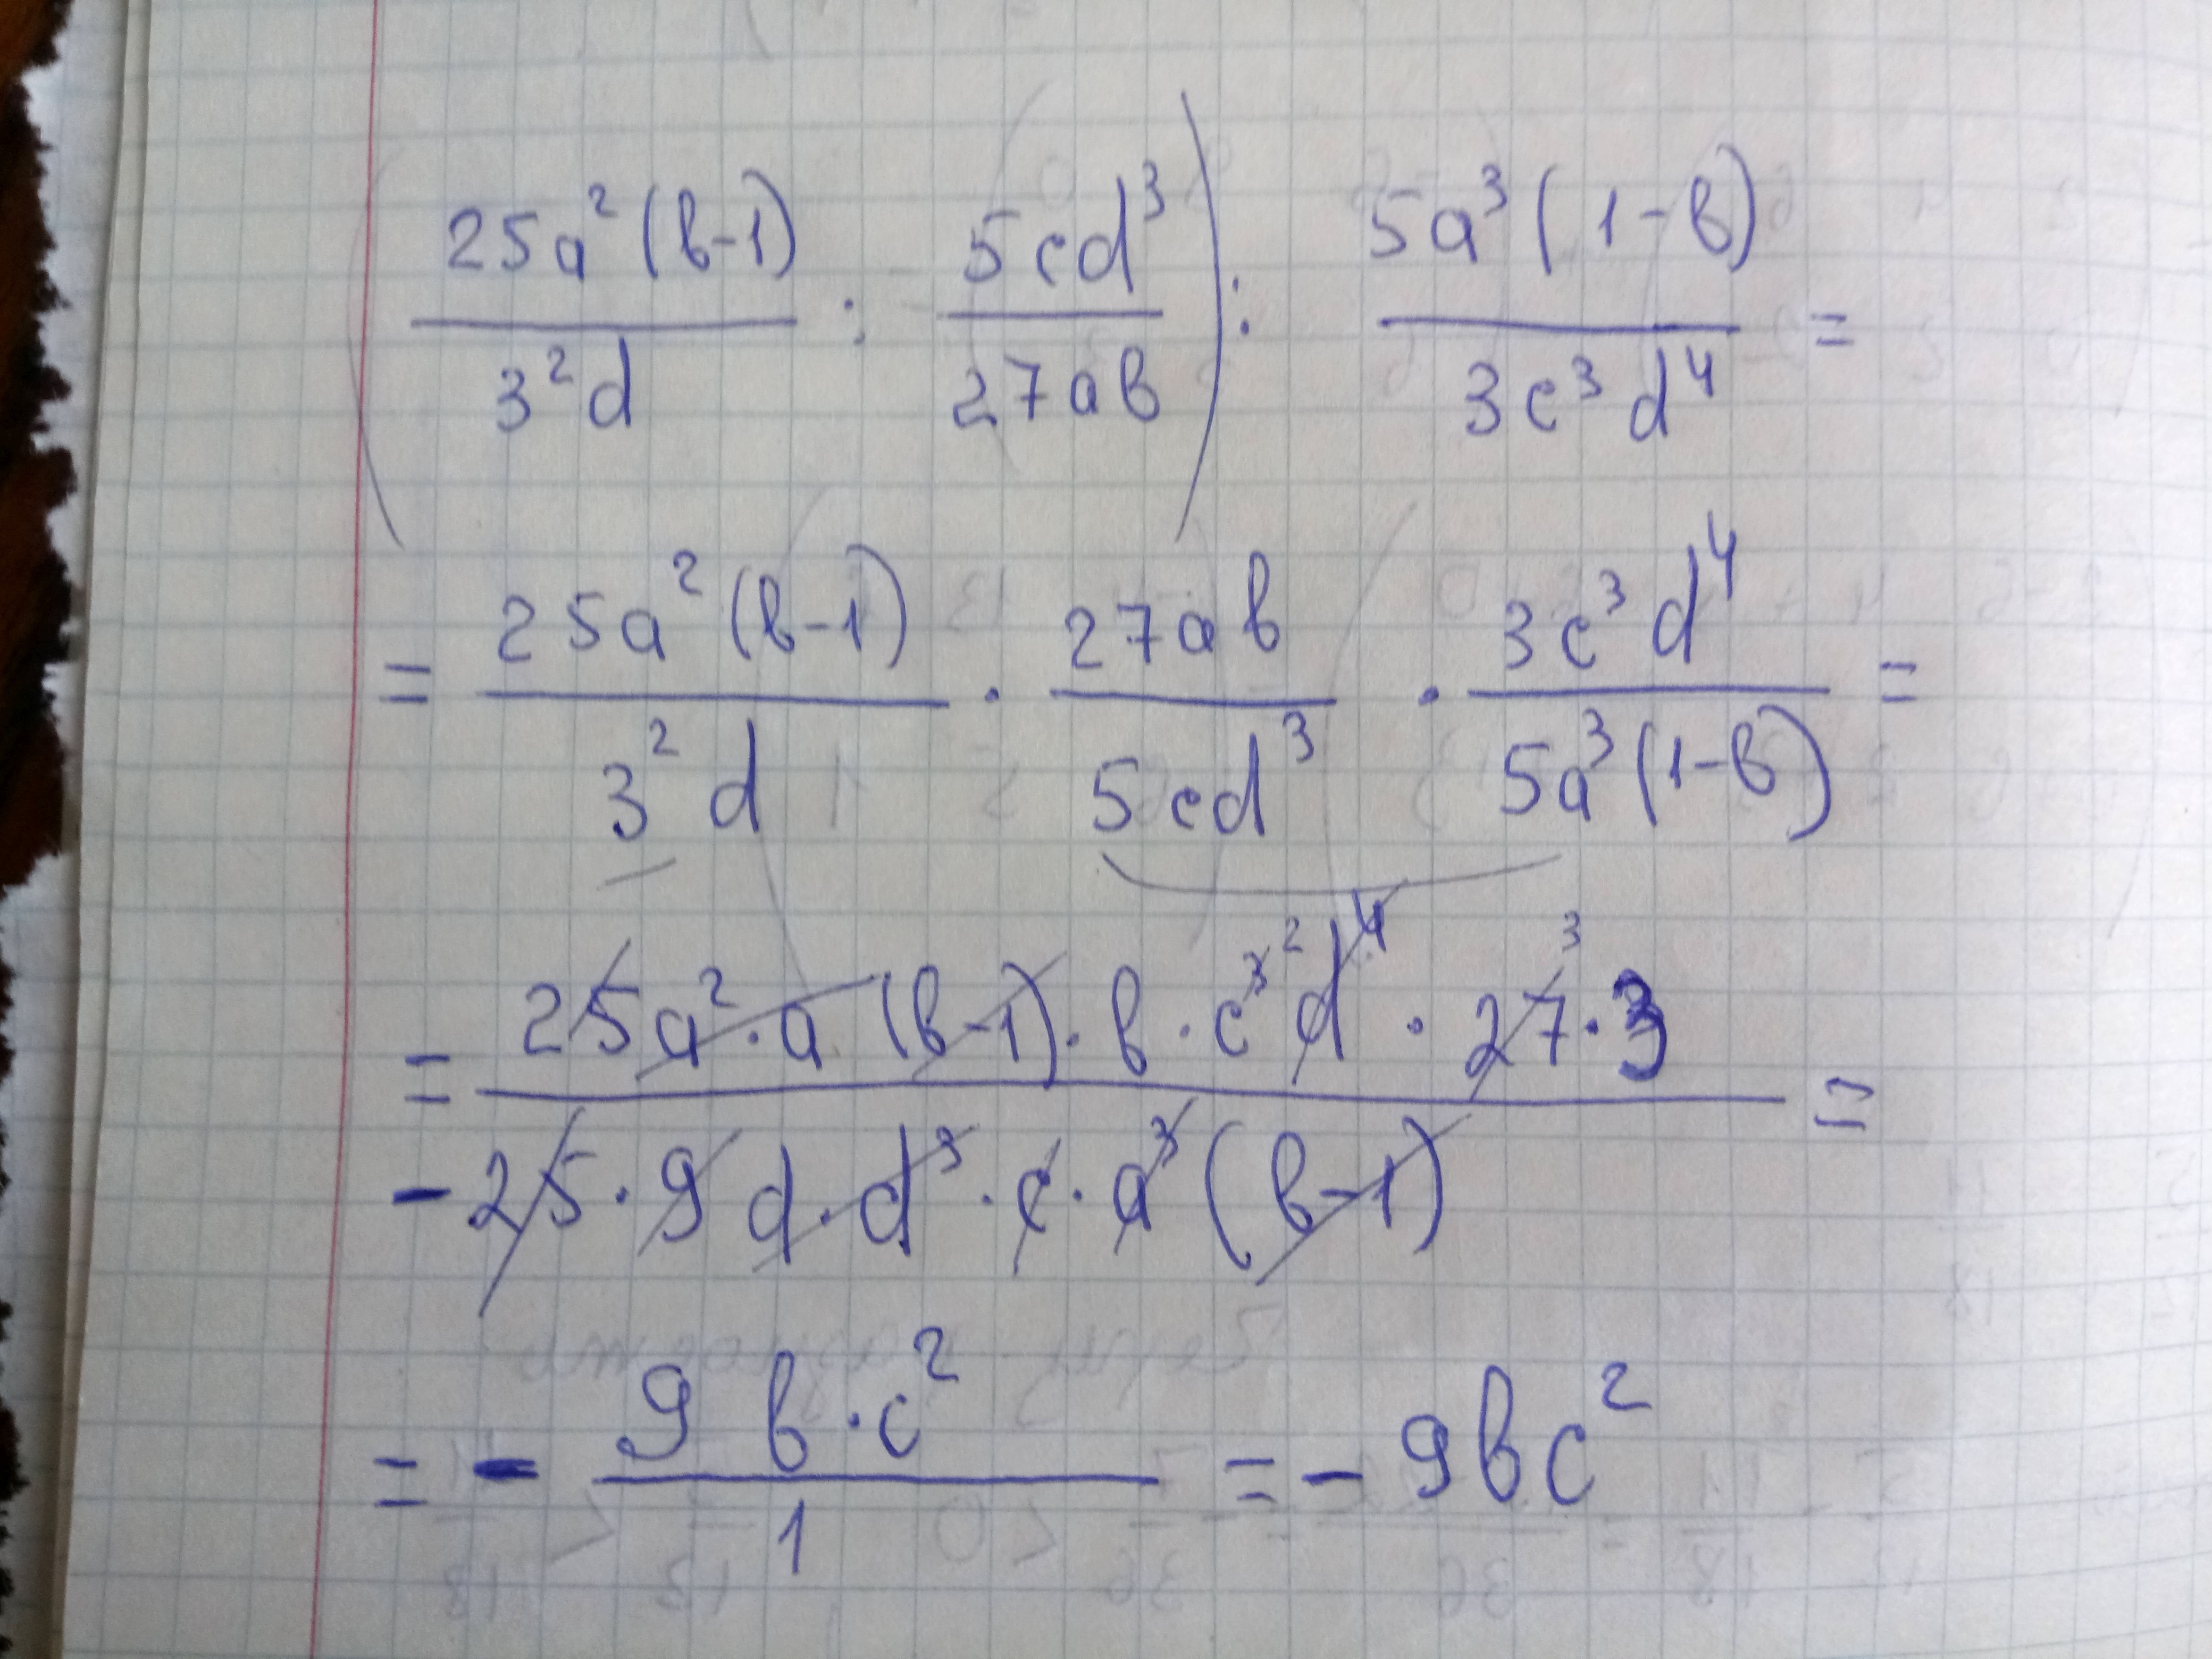 (25a²(b-1)/3²d : 5cd³/27ab) : 5a³(1-b)/3c³d⁴ =
= 25a²(b-1)/3²d · 27ab/5cd³ · 3c³d⁴/5a³(1-b) =
= 25a²·a(b-1)·b·c³ ² d⁴·27 ³·3 / -25·9d·d³·c·a³(b-1) =
= - 9b·c²/1 = - 9bc²